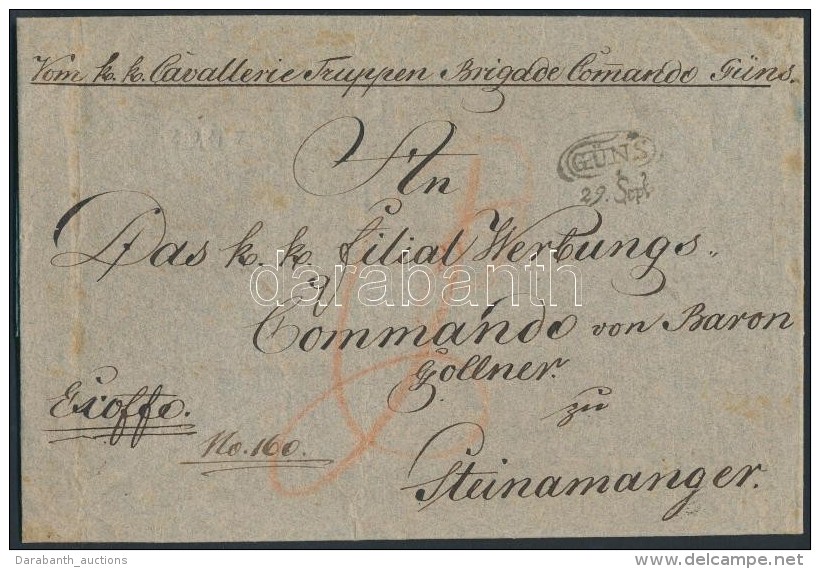 Vom k. k. Cavallerie Truppen Brigade Com̅ando Güns.
GÜNS
29. Sept
An
Das k. k. filial Werbungs„
Commando von Baron
Gollner.
zu
Exoffo.
No. 160.
Steinamanger.
darabanth
Darabanth_auctions
delcampe.net